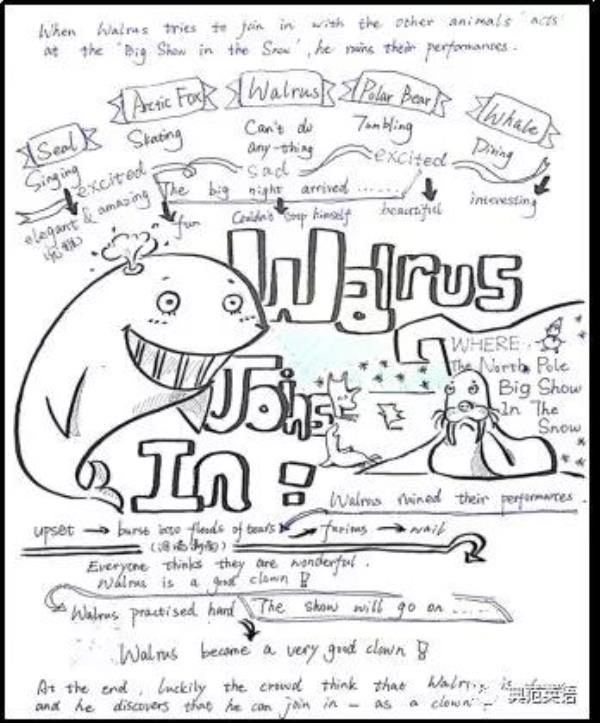 When Walrus tries to join in with the other animals' acts
at the "Big Show in the Snow", he ruins their performances.
Seal
Arctic Fox
Walrus
Polar Bear
Whale
Singing
Skating
Can't do
any-thing
Tumbling
Diving
excited
sad
excited
The big night arrived ......
elegant & amazing
fun
Couldn't stop himself
beautiful
interesting
Walrus
Joins
In !
WHERE
The North Pole
Big Show
In The
Snow
Walrus ruined their performances.
upset → burst into floods of tears → furious → wail
Everyone thinks they are wonderful.
Walrus is a good clown !
Walrus practised hard
The show will go on .....
Walrus became a very good clown !
At the end, luckily the crowd think that Walrus is
and he discovers that he can join in – as a clown
典范英语